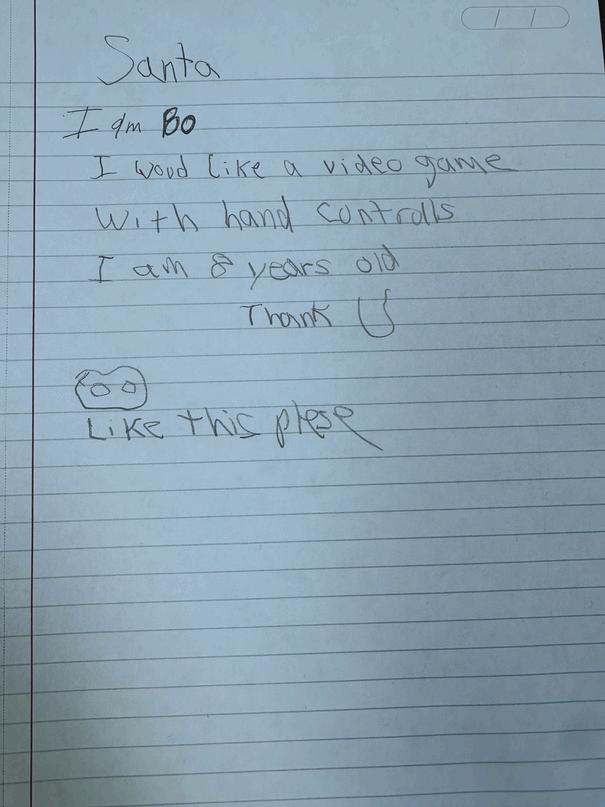 Santa
I am BO
I woud like a video game
with hand controlls
I am 8 years old
Thank U
Like this plese